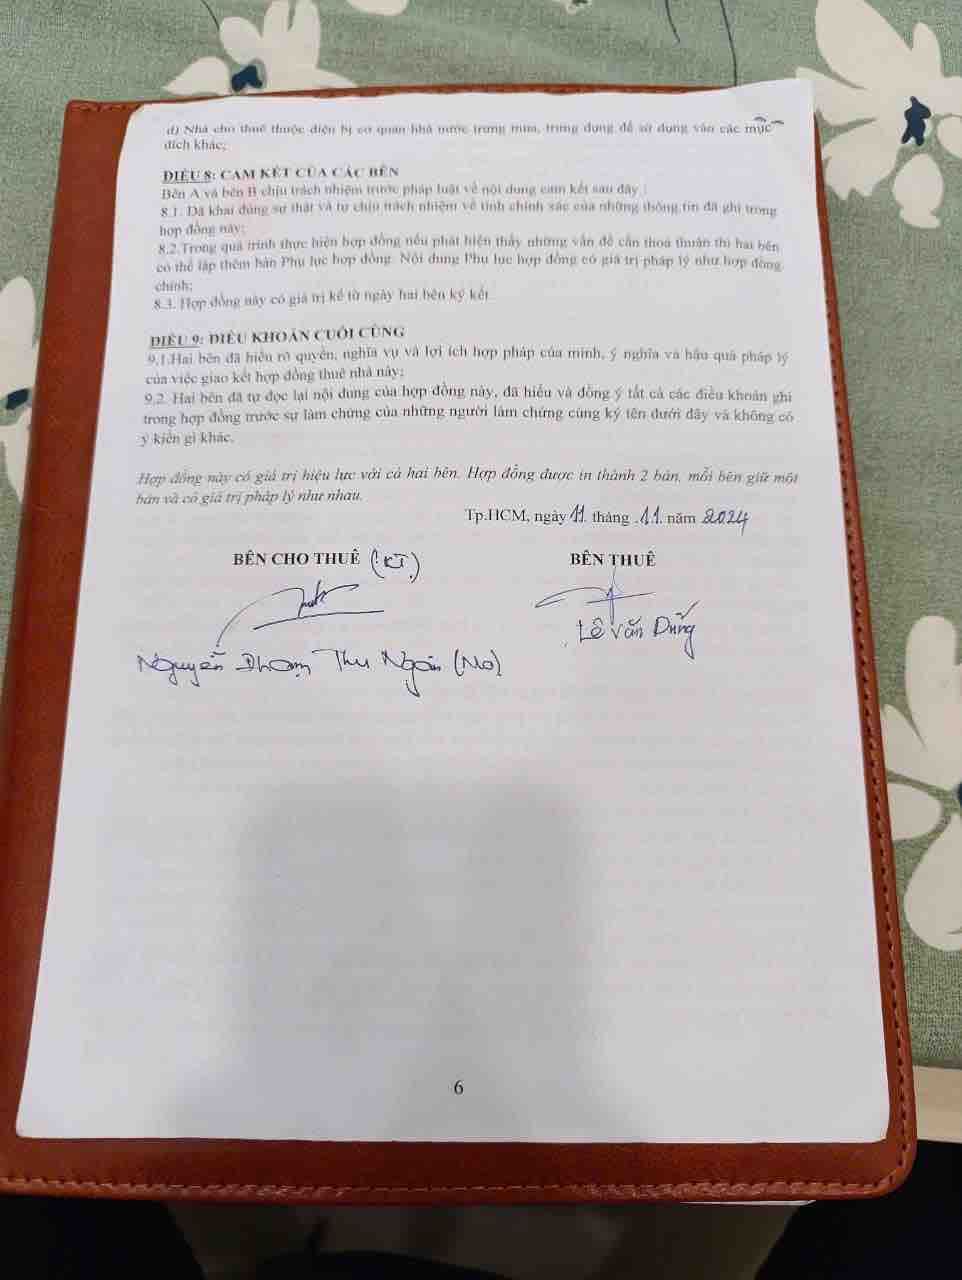 d) Nhà cho thuê thuộc diện bị cơ quan nhà nước trưng mua, trưng dụng để sử dụng vào các mục
đích khác;
ĐIỀU 8: CAM KẾT CỦA CÁC BÊN
Bên A và bên B chịu trách nhiệm trước pháp luật về nội dung cam kết sau đây :
8.1. Đã khai đúng sự thật và tự chịu trách nhiệm về tính chính xác của những thông tin đã ghi trong
hợp đồng này;
8.2.Trong quá trình thực hiện hợp đồng nếu phát hiện thấy những vấn đề cần thoả thuận thì hai bên
có thể lập thêm bản Phụ lục hợp đồng. Nội dung Phụ lục hợp đồng có giá trị pháp lý như hợp đồng
chính;
8.3. Hợp đồng này có giá trị kể từ ngày hai bên ký kết.
ĐIỀU 9: ĐIỀU KHOẢN CUỐI CÙNG
9.1.Hai bên đã hiểu rõ quyền, nghĩa vụ và lợi ích hợp pháp của mình, ý nghĩa và hậu quả pháp lý
của việc giao kết hợp đồng thuê nhà này;
9.2. Hai bên đã tự đọc lại nội dung của hợp đồng này, đã hiểu và đồng ý tất cả các điều khoản ghi
trong hợp đồng trước sự làm chứng của những người làm chứng cùng ký tên dưới đây và không có
ý kiến gì khác.
Hợp đồng này có giá trị hiệu lực với cả hai bên. Hợp đồng được in thành 2 bản, mỗi bên giữ một
bản và có giá trị pháp lý như nhau.
Tp.HCM, ngày 11. tháng .11. năm 2024
BÊN CHO THUÊ BÊN THUÊ
Lê Văn Dũng
Nguyễn Phạm Thu Ngân
6